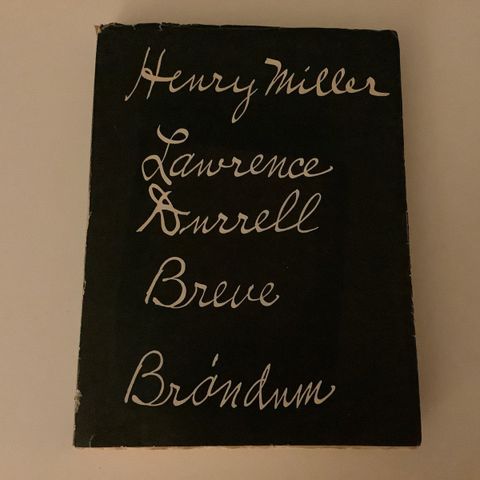 Henry Miller
Lawrence
Durrell
Breve
Bróndum